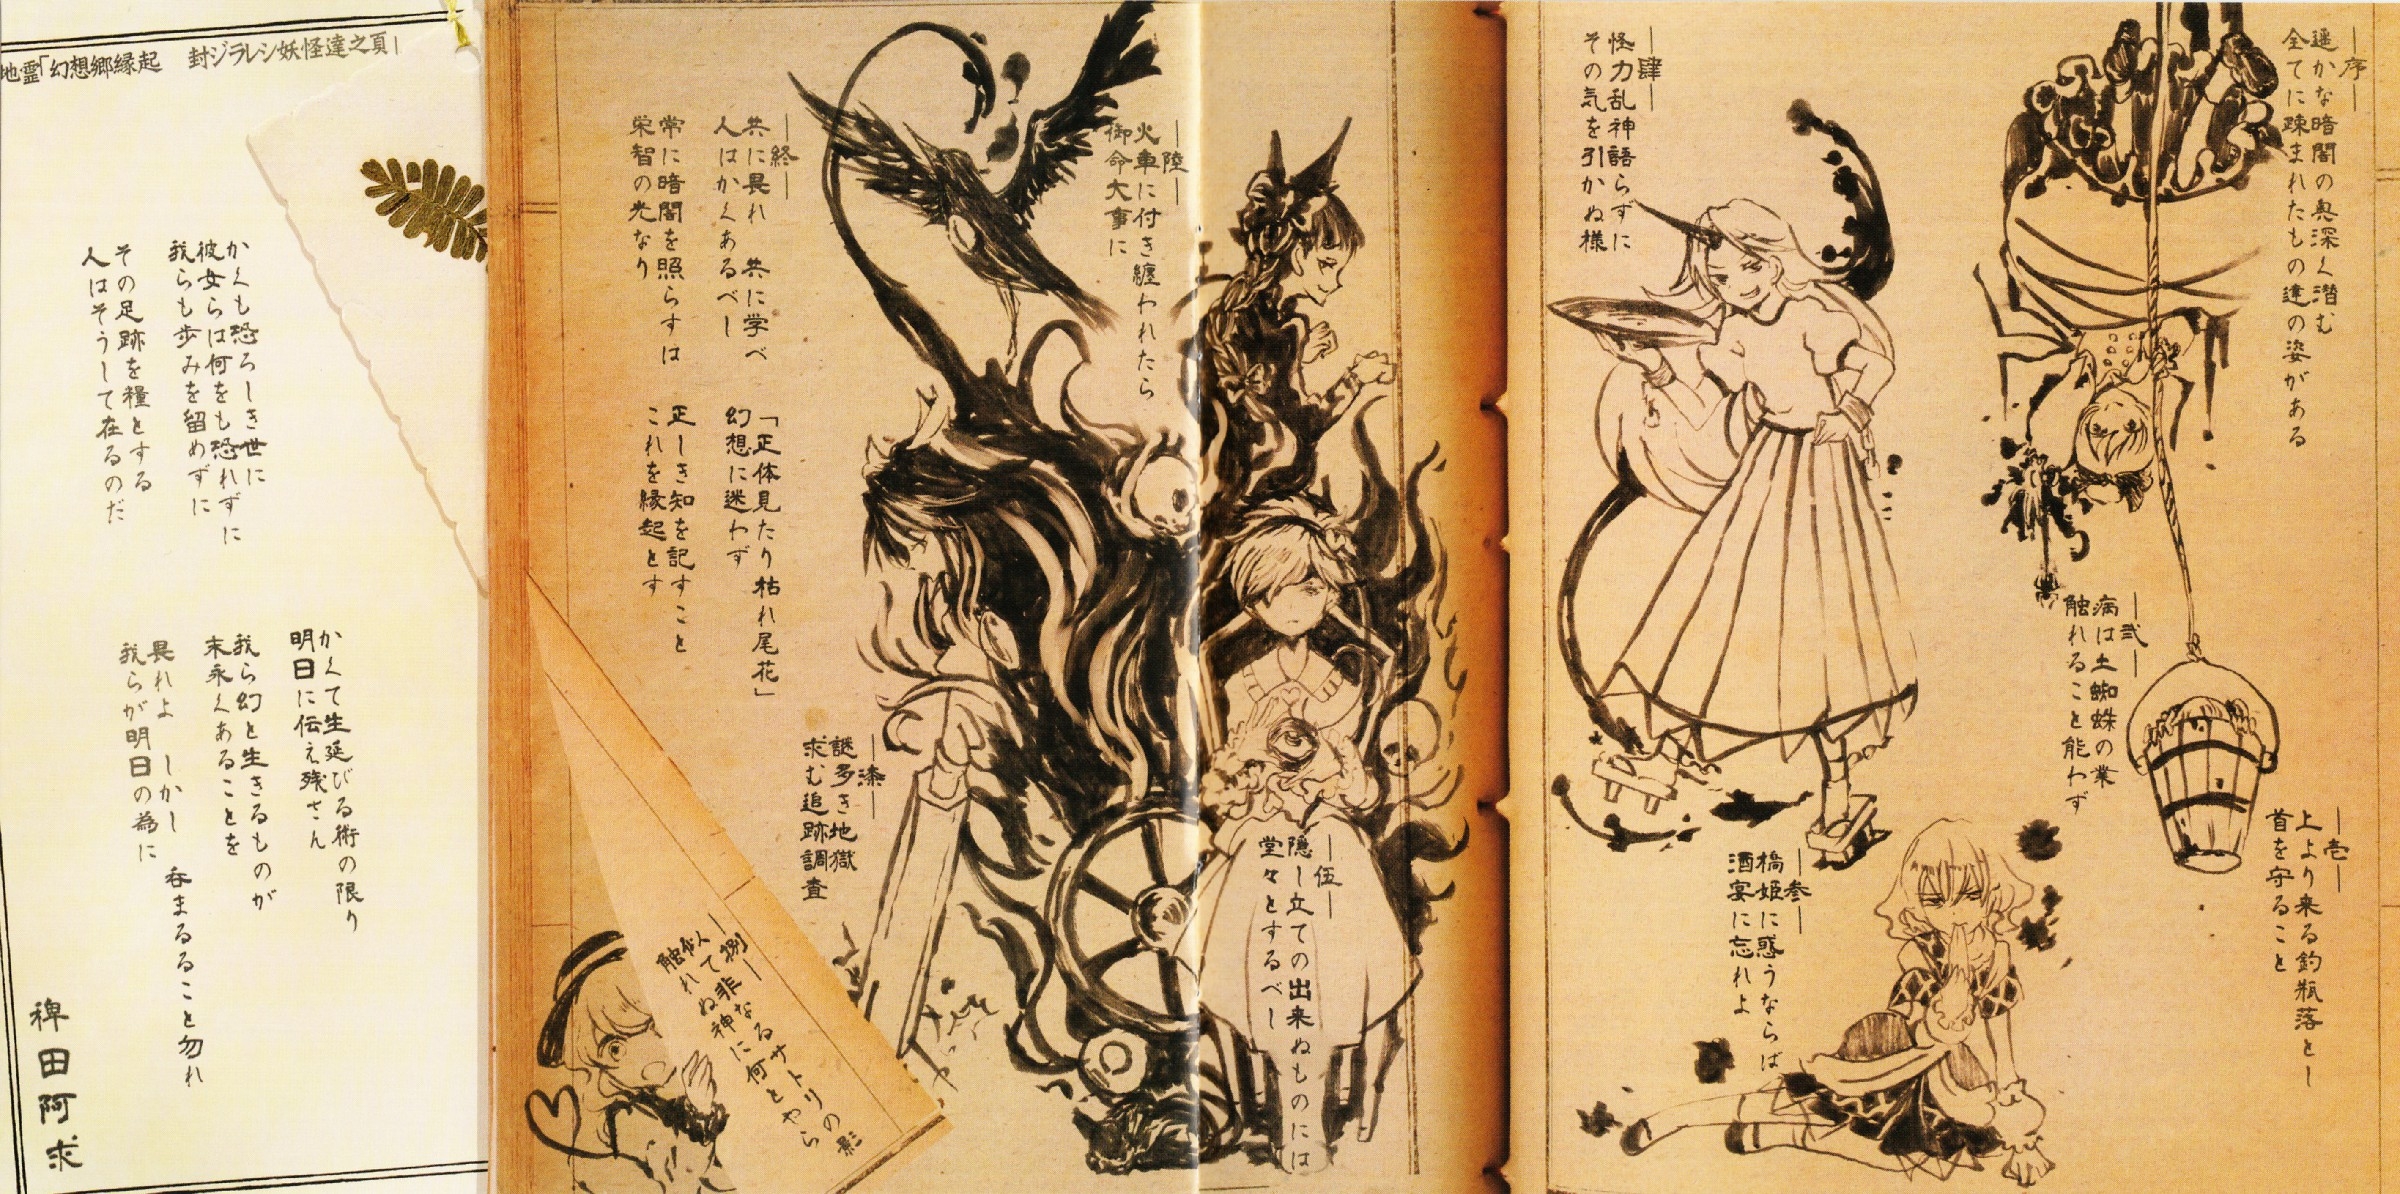 ―序―
遥かな暗闇の奥深く潜む
全てに疎まれたもの達の姿がある
―壱―
上より来る釣瓶落とし
首を守ること
―弐―
病は土蜘蛛の業
触れること能わず
―参―
橋姫に惑うならば
酒宴に忘れよ
―肆―
怪力乱神語らずに
その気を引かぬ様
―伍―
隠し立ての出来ぬものには
堂々とするべし
―陸―
火車に付き纏われたら
御命大事に
―漆―
謎多き地獄
求む追跡調査
―捌―
似て非なるサトリの影
触れぬ神に何とやら
―終―
共に畏れ 共に学べ
人はかくあるべし
常に暗闇を照らすは
栄智の光なり
「正体見たり枯れ尾花」
幻想に迷わず
正しき知を記すこと
これを縁起とす
地霊「幻想郷縁起 封ジラレシ妖怪達之頁」
かくも恐ろしき世に
彼女らは何をも恐れずに
我らも歩みを留めずに
その足跡を糧とする
人はそうして在るのだ
かくて生延びる術の限り
明日に伝え残さん
我ら幻と生きるものが
末永くあることを
畏れよ しかし 呑まるること勿れ
我らが明日の為に
稗田阿求